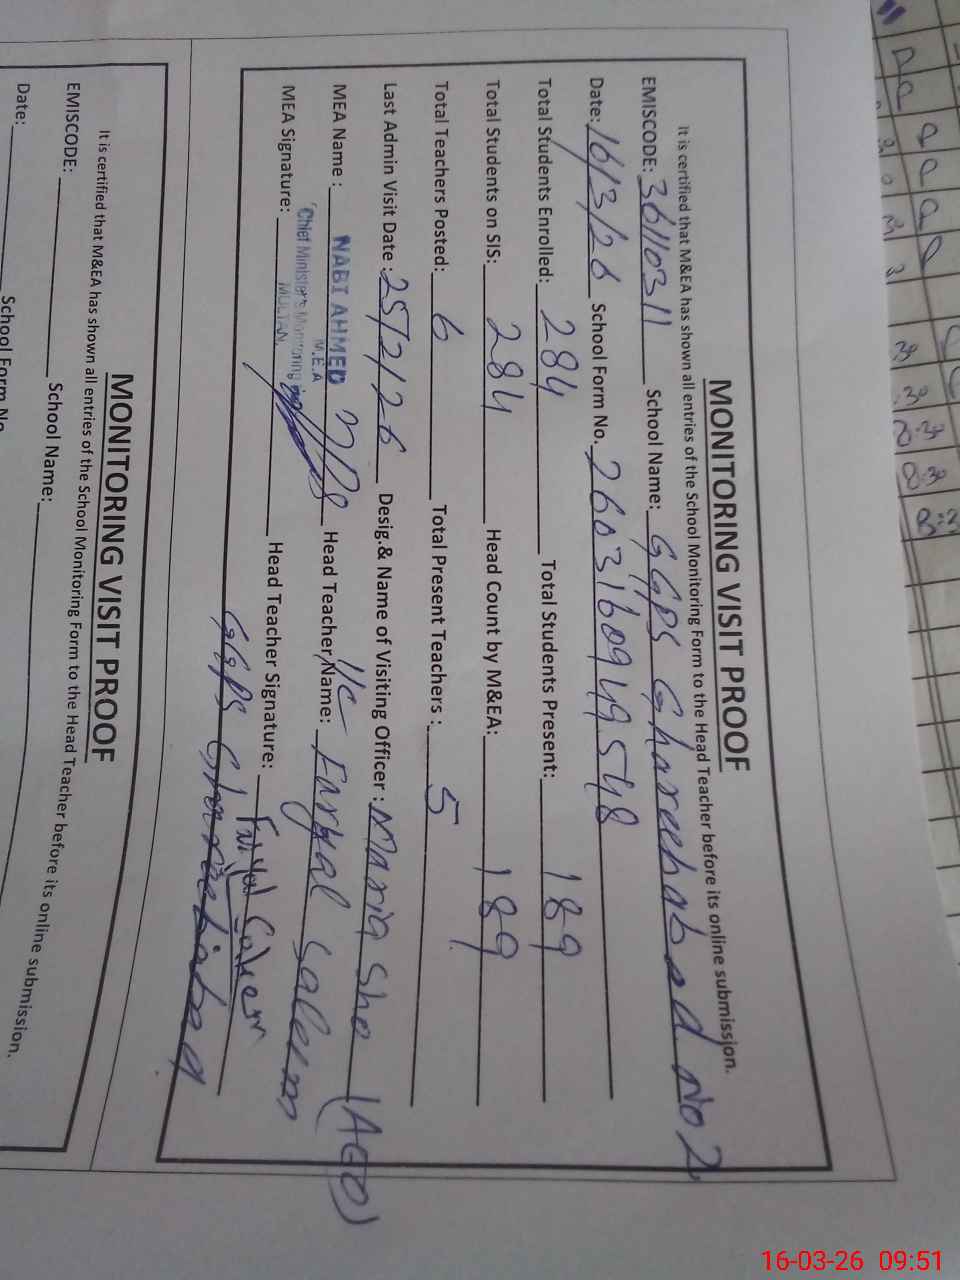 MONITORING VISIT PROOF
It is certified that M&EA has shown all entries of the School Monitoring Form to the Head Teacher before its online submission.
EMISCODE: 36110311 School Name: GGPS Ghareebabad No 2
Date: 16/3/26 School Form No. 2603160949548
Total Students Enrolled: 284 Total Students Present: 189
Total Students on SIS: 284 Head Count by M&EA: 189
Total Teachers Posted: 6 Total Present Teachers : 5
Last Admin Visit Date : 25/2/26 Desig.& Name of Visiting Officer : Maria Sha (AEO)
MEA Name : NABI AHMED Head Teacher Name: I/C Faryal Saleem
M.E.A
Chief Minister's Monitoring
MULTAN
MEA Signature: Head Teacher Signature: Faryal Saleem
GGPS Ghareebabad
MONITORING VISIT PROOF
It is certified that M&EA has shown all entries of the School Monitoring Form to the Head Teacher before its online submission.
EMISCODE: School Name:
Date: School Form No
16-03-26 09:51